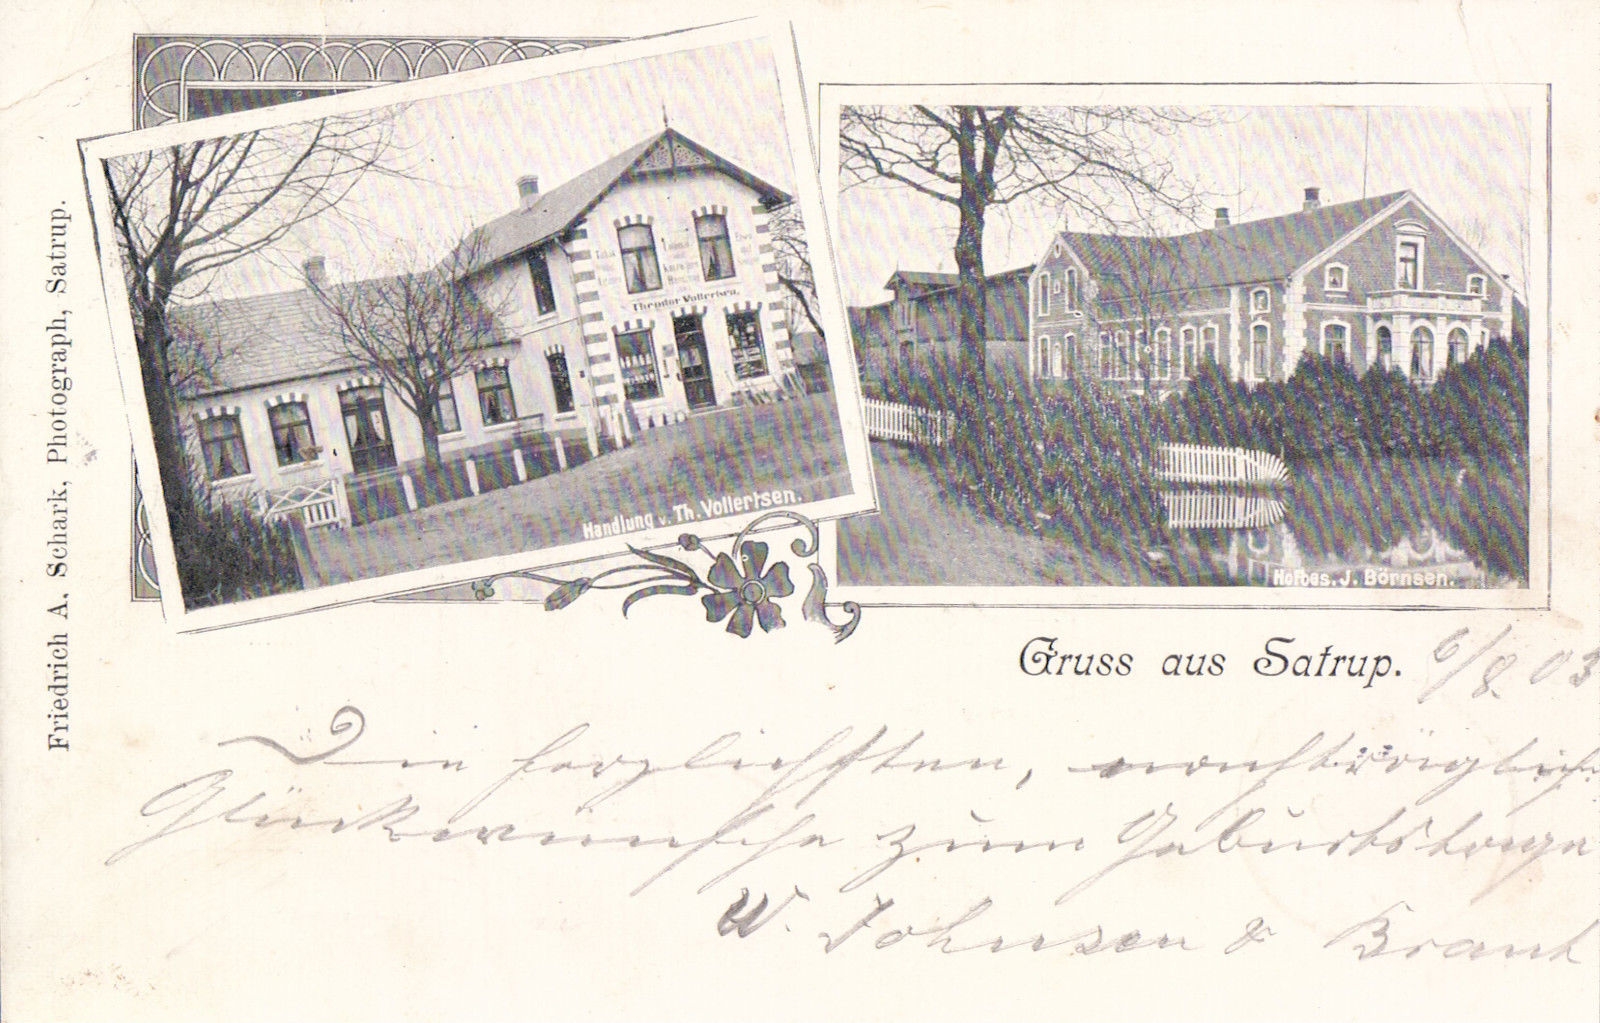 Friedrich A. Schark, Photograph, Satrup.
Theodor Vollertsen.
Handlung v. Th. Vollertsen.
Hofbes. J. Börnsen.
Gruss aus Satrup.
6/8. 03
Die herzlichsten, nachträglich
Glückwünsche zum Geburtstage
W. Johnsen & Braut